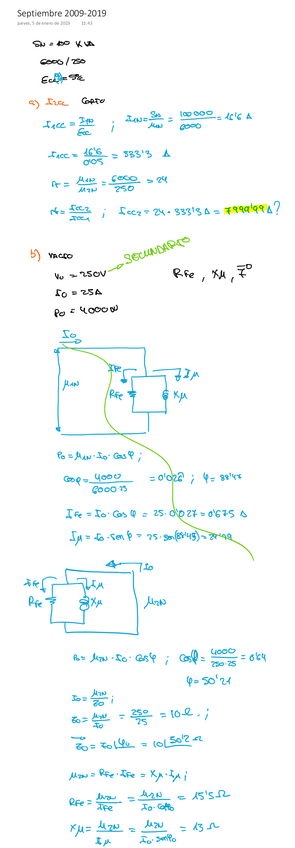 Septiembre 2009-2019
jueves, 5 de enero de 2023 11:43
SN = 100 KVA
6000/250
Ecc = 5%
a) I2cc CORTO
I1cc = I1N/Ecc ; I1N = SN/U1N = 100000/6000 = 16'6 A
I1cc = 16'6/0'05 = 333'3 A
rt = U1N/U2N = 6000/250 = 24
rt = Icc2/Icc1 ; Icc2 = 24 · 333'3 A = 7999'99 A?
b) VACIO
V0 = 250V → SECUNDARIO
I0 = 25A
P0 = 4000W
RFe, Xμ,
I0
U1N
IFe
Iμ
RFe
Xμ
P0 = U1N · I0 · cosφ ;
cosφ = 4000/6000·25 = 0'026 ; φ = 88'47
IFe = I0 · cosφ = 25 · 0'027 = 0'675 A
Iμ = I0 · senφ = 25 · sen(88'45) = 24'99
I0
IFe
Iμ
RFe
Xμ
U2N
P0 = U2N · I0 · cosφ ; cosφ = 4000/250·25 = 0'64
φ = 50'21
I0 = U2N/Z0 ;
Z0 = U2N/I0 = 250/25 = 10 Ω . ;
Z0 = Z0 ∠φ0 = 10 ∠50'2 Ω
U2N = RFe · IFe = Xμ · Iμ ;
RFe = U2N/IFe = U2N/I0·cosφ0 = 15'5 Ω
Xμ = U2N/Iμ = U2N/I0·senφ0 = 13 Ω